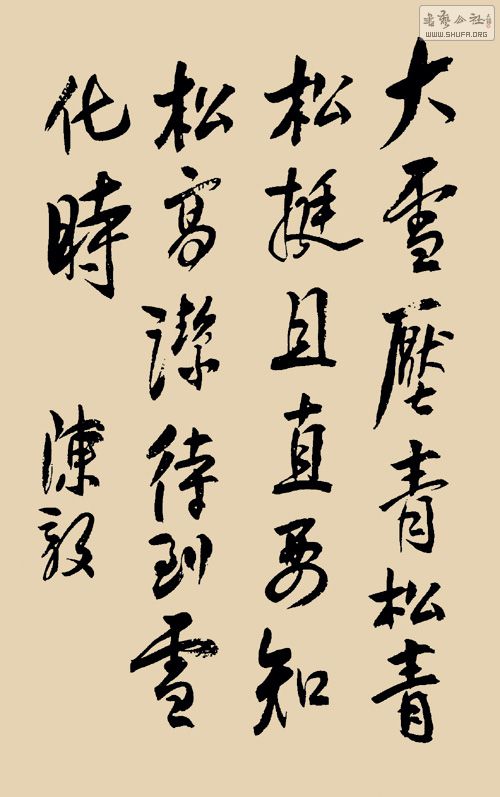 大雪壓青松青
松挺且直要知
松高潔待到雪
化時
陳毅
WWW.SHUFA.ORG